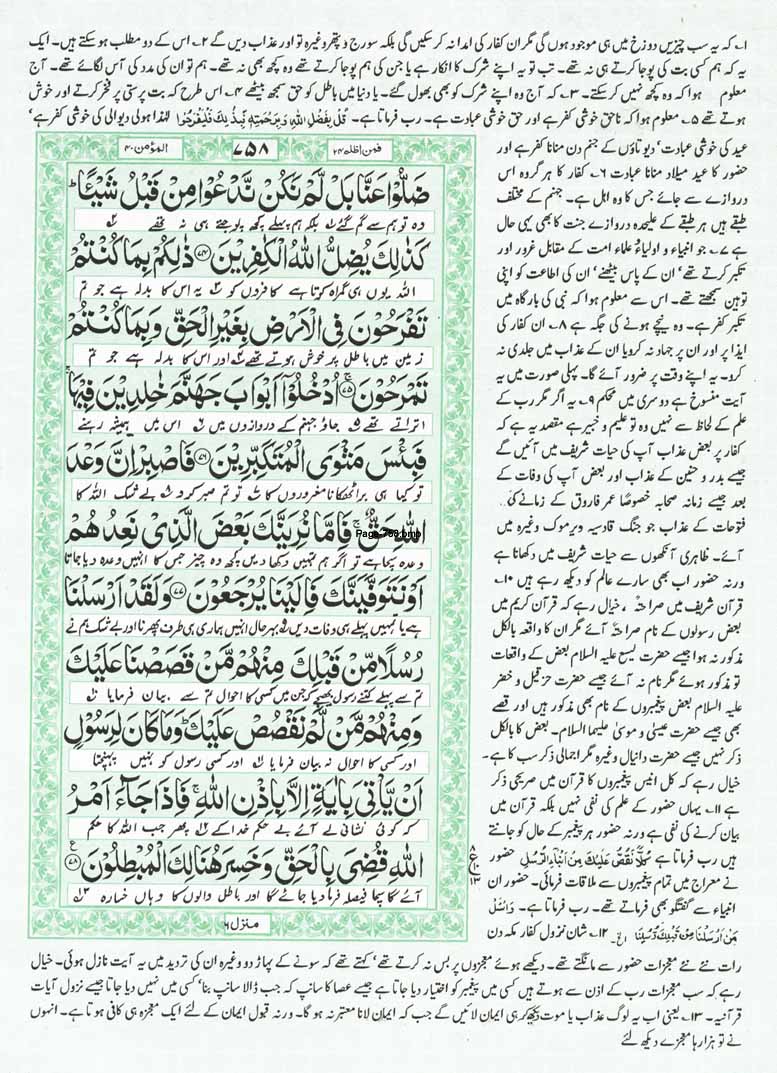 ۱۔ کہ یہ سب چیزیں دوزخ میں ہی موجود ہوں گی مگر ان کفار کی امداد نہ کر سکیں گی بلکہ سورج و پتھر وغیرہ تو اور عذاب دیں گے ۲۔ اس کے دو مطلب ہو سکتے ہیں۔ ایک
یہ کہ ہم کسی بت کی پوجا کرتے ہی نہ تھے۔ تب تو یہ اپنے شرک کا انکار ہے یا جن کی ہم پوجا کرتے تھے وہ کچھ بھی نہ تھے۔ ہم تو ان کی مدد کی آس لگائے تھے۔ آج
معلوم ہوا کہ وہ کچھ نہیں کر سکتے۔ ۳۔ کہ آج وہ اپنے شرک کو بھی بھول گئے۔ یا دنیا میں باطل کو حق سمجھ بیٹھے ۴۔ اس طرح کہ بت پرستی پر فخر کرتے اور خوش
ہوتے تھے ۵۔ معلوم ہوا کہ ناحق خوشی کفر ہے اور حق خوشی عبادت ہے۔ رب فرماتا ہے۔ قُلْ بِفَضْلِ اللّٰهِ وَبِرَحْمَتِهٖ فَبِذٰلِكَ فَلْيَفْرَحُوْا لہٰذا ہولی دیوالی کی خوشی کفر ہے'
عید کی خوشی عبادت' دیوتاؤں کے جنم دن منانا کفر ہے اور
حضور کا عید میلاد منانا عبادت ۶۔ یعنی کفار کا ہر گروہ اس
دروازے سے جائے جس کا وہ اہل ہے۔ جہنم کے مختلف
طبقے ہیں ہر طبقے کے علیحدہ دروازے جنت کا بھی یہی حال
ہے ۷۔ جو انبیاء و اولیاء' علماء امت کے مقابل غرور اور
تکبر کرتے تھے' ان کے پاس بیٹھنے' ان کی اطاعت کو اپنی
توہین سمجھتے تھے۔ اس سے معلوم ہوا کہ نبی کی بارگاہ میں
تکبر کفر ہے۔ وہ نیچے ہونے کی جگہ ہے ۸۔ ان کفار کی
ایذا پر اور ان پر جہاد نہ کرو یا ان کے عذاب میں جلدی نہ
کرو۔ یہ اپنے وقت پر ضرور آئے گا۔ پہلی صورت میں یہ
آیت منسوخ ہے دوسری میں محکم ۹۔ یہ اگر مگر رب کے
علم کے لحاظ سے نہیں وہ تو علیم و خبیر ہے مقصد یہ ہے کہ
کفار پر بعض عذاب آپ کی حیات شریف میں آئیں گے
جیسے بدر و حنین کے عذاب اور بعض آپ کی وفات کے
بعد جیسے زمانہ صحابہ خصوصًا عمر فاروق کے زمانے کی
فتوحات کے عذاب جو جنگ قادسیہ ویرموک وغیرہ میں
آئے۔ ظاہری آنکھوں سے حیات شریف میں دکھانا ہے
ورنہ حضور اب بھی سارے عالم کو دیکھ رہے ہیں ۱۰۔
قرآن شریف میں صراحۃً ، خیال رہے کہ قرآن کریم میں
بعض رسولوں کے نام صراحۃً آئے مگر ان کا واقعہ بالکل
مذکور نہ ہوا جیسے حضرت یسع علیہ السلام بعض کے واقعات
تو مذکور ہوئے مگر نام نہ آئے جیسے حضرت حزقیل و خضر
علیہ السلام بعض پیغمبروں کے نام بھی مذکور ہیں اور قصے
بھی جیسے حضرت عیسٰی و موسٰی علیہما السلام۔ بعض کا بالکل
ذکر نہیں جیسے حضرت دانیال وغیرہ مگر اجمالی ذکر سب کا ہے۔
خیال رہے کہ کل انیس پیغمبروں کا قرآن میں صریحی ذکر
ہے ۱۱۔ یہاں حضور کے علم کی نفی نہیں بلکہ قرآن میں
بیان کرنے کی نفی ہے ورنہ حضور ہر پیغمبر کے حال کو جانتے
ہیں رب فرماتا ہے كُلًّا نَّقُصُّ عَلَيْكَ مِنْ اَنْۢبَآءِ الرُّسُلِ حضور
نے معراج میں تمام پیغمبروں سے ملاقات فرمائی۔ حضور ان
انبیاء سے گفتگو بھی فرماتے تھے۔ رب فرماتا ہے۔ وَاسْئَلْ
مَنْ اَرْسَلْنَا مِنْ قَبْلِكَ مِنْ رُّسُلِنَا الخ۔ ۱۲۔ شان نزول کفار مکہ دن
فمن اظلم ۲۴
۷۵۸
المؤمن ۴۰
ضَلُّوْا عَنَّا بَلْ لَّمْ نَكُنْ نَّدْعُوْا مِنْ قَبْلُ شَيْـًٔا ؕ
وہ تو ہم سے گم گئے بلکہ ہم پہلے کچھ پوجتے ہی نہ تھے
كَذٰلِكَ يُضِلُّ اللّٰهُ الْكٰفِرِيْنَ ﴿۷۴﴾ ذٰلِكُمْ بِمَا كُنْتُمْ
اللہ یوں ہی گمراہ کرتا ہے کافروں کو یہ اس کا بدلہ ہے جو تم
تَفْرَحُوْنَ فِى الْاَرْضِ بِغَيْرِ الْحَقِّ وَبِمَا كُنْتُمْ
زمین میں باطل پر خوش ہوتے تھے اور اس کا بدلہ ہے جو تم
تَمْرَحُوْنَ ﴿۷۵﴾ اُدْخُلُوْٓا اَبْوَابَ جَهَنَّمَ خٰلِدِيْنَ فِيْهَا ۚ
اتراتے تھے جاؤ جہنم کے دروازوں میں اس میں ہمیشہ رہنے
فَبِئْسَ مَثْوَى الْمُتَكَبِّرِيْنَ ﴿۷۶﴾ فَاصْبِرْ اِنَّ وَعْدَ
تو کیا ہی برا ٹھکانا مغروروں کا تو تم صبر کرو بے شک اللہ کا
اللّٰهِ حَقٌّ ۚ فَاِمَّا نُرِيَنَّكَ بَعْضَ الَّذِىْ نَعِدُهُمْ
Page-758.bmp
وعدہ سچا ہے تو اگر ہم تمہیں دکھا دیں کچھ وہ چیز جس کا انہیں وعدہ دیا جاتا
اَوْ نَتَوَفَّيَنَّكَ فَاِلَيْنَا يُرْجَعُوْنَ ﴿۷۷﴾ وَلَقَدْ اَرْسَلْنَا
ہے یا تمہیں پہلے ہی وفات دیں بہرحال انہیں ہماری ہی طرف پھرنا اور بے شک ہم نے
رُسُلًا مِّنْ قَبْلِكَ مِنْهُمْ مَّنْ قَصَصْنَا عَلَيْكَ
تم سے پہلے کتنے رسول بھیجے کہ جن میں کسی کا احوال تم سے بیان فرمایا
وَمِنْهُمْ مَّنْ لَّمْ نَقْصُصْ عَلَيْكَ ؕ وَمَا كَانَ لِرَسُوْلٍ
اور کسی کا احوال نہ بیان فرمایا اور کسی رسول کو نہیں پہنچتا
اَنْ يَّاْتِىَ بِاٰيَةٍ اِلَّا بِاِذْنِ اللّٰهِ ۚ فَاِذَا جَآءَ اَمْرُ
کہ کوئی نشانی لے آئے بے حکم خدا کے پھر جب اللہ کا حکم
اللّٰهِ قُضِىَ بِالْحَقِّ وَخَسِرَ هُنَالِكَ الْمُبْطِلُوْنَ ﴿۷۸﴾
آئے گا سچا فیصلہ فرما دیا جائے گا اور باطل والوں کا وہاں خسارہ
منزل ۶
رات نئے نئے معجزات حضور سے مانگتے تھے۔ دیکھے ہوئے معجزوں پر بس نہ کرتے تھے' کہتے تھے کہ سونے کے پہاڑ دو وغیرہ ان کی تردید میں یہ آیت نازل ہوئی۔ خیال
رہے کہ سب معجزات رب کے اذن سے ہوتے ہیں کسی میں پیغمبر کو اختیار دیا جاتا ہے جیسے عصا کا سانپ کہ جب ڈالا سانپ بنا' کسی میں نہیں دیا جاتا جیسے نزول آیات
قرآنیہ۔ ۱۳۔ یعنی اب یہ لوگ عذاب یا موت دیکھ کر ہی ایمان لائیں گے جب کہ ایمان لانا معتبر نہ ہو گا۔ ورنہ قبول ایمان کے لئے ایک معجزہ ہی کافی ہوتا ہے۔ انہوں
نے تو ہزارہا معجزے دیکھ لئے